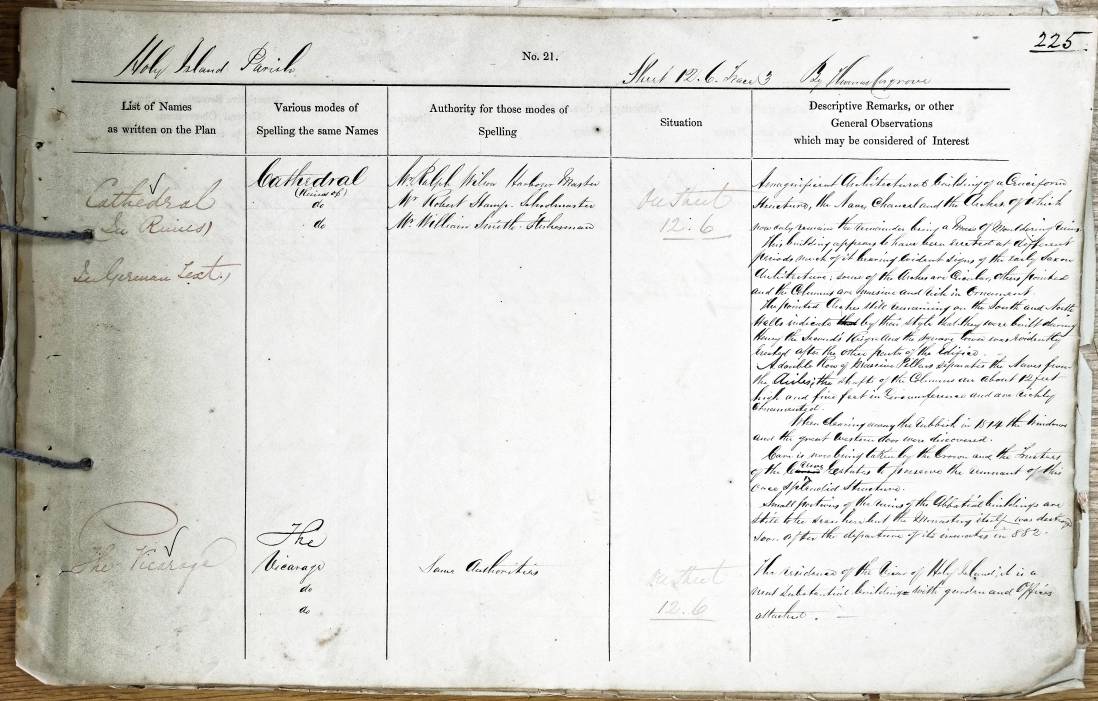 225
Holy Island Parish
No. 21.
Sheet 12.6. Trace 3 By Thomas Cosgrove
List of Names
as written on the Plan
Various modes of
Spelling the same Names
Authority for those modes of
Spelling
Situation
Descriptive Remarks, or other
General Observations
which may be considered of Interest
Cathedral
(In Ruins)
In German Text)
Cathedral
(Ruins of)
do
do
Mr. Ralph Wilson Harbour Master
Mr Robert Stamp. Schoolmaster
Mr William Smith. Fisherman
On Sheet
12.6
A magnificent Architectural building of a Cruciform
Structure, the Nave, Chancel and the Arches of Which
now only remain the remainder being a Mass of Mouldering ruins
This building appears to have been erected at different
periods much of it bearing evident signs of the early Saxon
Architecture; some of the Arches are Circular, others pointed
and the Columns are massive and rich in Ornament
The pointed Arches still remaining on the South and North
Walls indicate by their style that they were built during
Henry the Second's Reign and the square tower was evidently
Erected after the other parts of the Edifice.
A double Row of Massive Pillars separates the Naves from
the Aisles; the shafts of the Columns are about 12 feet
high and five feet in Circumference and are richly
Ornamented.
When clearing away the rubbish in 1814 the Windows
and the great Western door were discovered.
Care is now being taken by the Crown and the Trustees
of the Estates to preserve the remnant of this
once splendid Structure.
Small portions of the ruins of the Abbatial buildings are
still to be seen here but the Monastery itself was destroyed
soon after the departure of its inmates in 882.
The Vicarage
The
Vicarage
do
do
Same Authorities
On Sheet
12.6
The residence of the Vicar of Holy Island; it is a
neat substantial building with garden and Offices
attached.